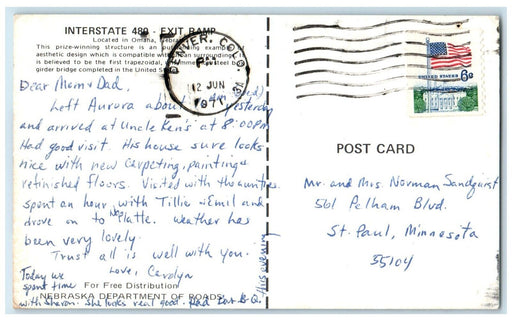 INTERSTATE 480 - EXIT RAMP
Located in Omaha, Nebraska
This prize-winning structure is an outstanding example of
aesthetic design which is compatible with urban surroundings. It
is believed to be the first trapezoidal, steel box
girder bridge completed in the United States.
Dear Mom & Dad,
Left Aurora about yesterday
and arrived at Uncle Ken's at 8:00 PM.
Had good visit. His house sure looks
nice with new carpeting, paintings
refinished floors. Visited with the aunties
spent an hour with Tillie & Emil and
drove on to No Platte. Weather has
been very lovely.
Trust all is well with you.
Love, Carolyn
Today we
spent time
with Sharon. She looks real good. Had Bar B-Q.
this evening
For Free Distribution
NEBRASKA DEPARTMENT OF ROADS
DENVER, COLO.
PM
12 JUN
1971
UNITED STATES
6c
POST CARD
Mr. and Mrs. Norman Sandquist
561 Pelham Blvd.
St. Paul, Minnesota
55104